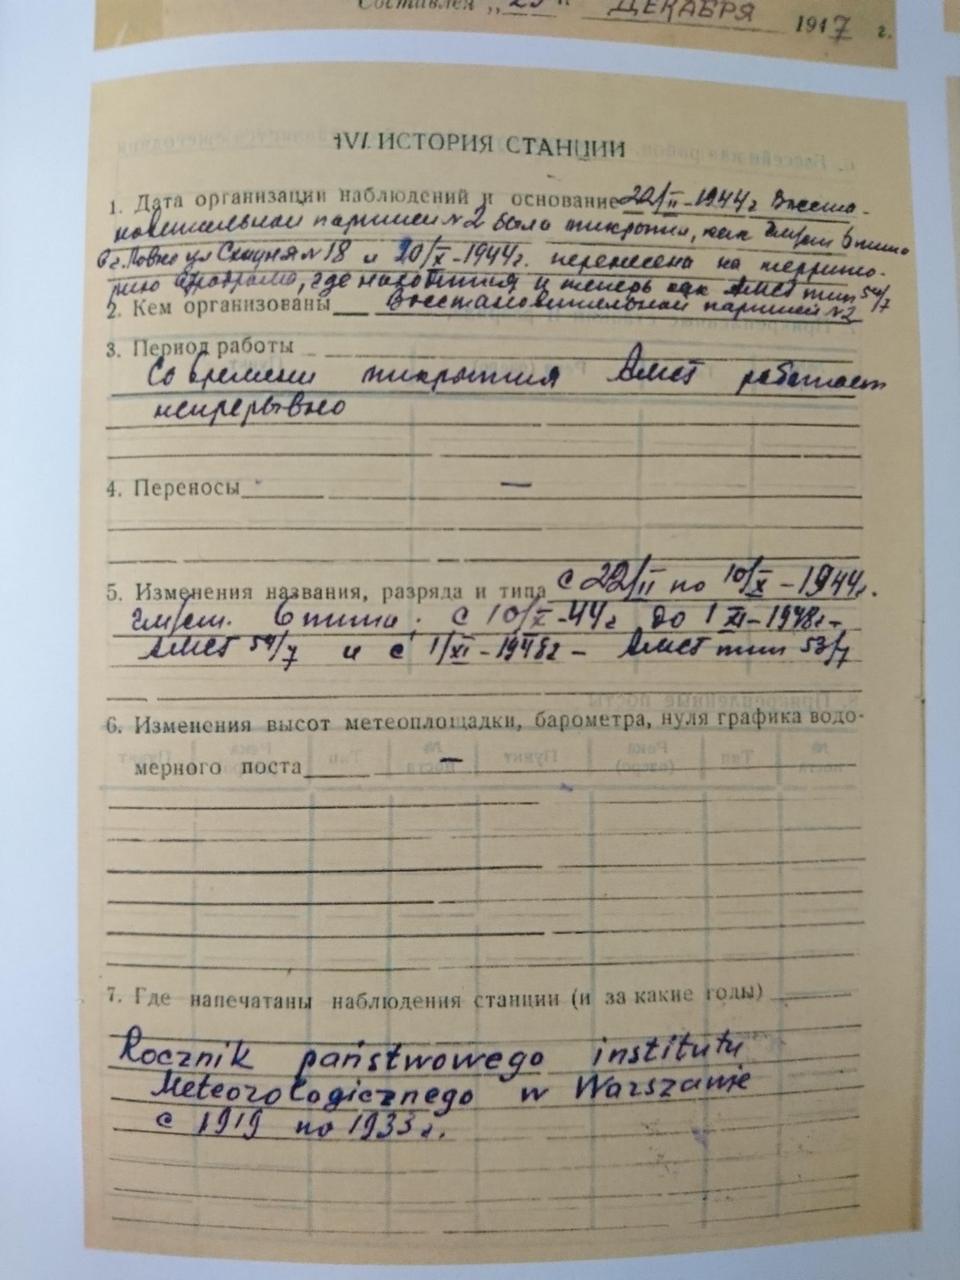 Составлен „ 29 " ДЕКАБРЯ 1947 г.
IV. ИСТОРИЯ СТАНЦИИ
1. Дата организации наблюдений и основание 22/II-1944г Восста-
новительной партией №2 была открыта, как 6 типа
в г. Ровно ул №18 и 10/X-1944г. перенесена на террито-
рию аэродрома, где находится и теперь как АМСГ тип 54/7
2. Кем организованы Восстановительной партией №2
3. Период работы
Со времени открытия АМСГ работает
непрерывно
4. Переносы —
5. Изменения названия, разряда и типа с 22/II по 10/X-1944г.
6 типа; с 10/X-44г до 1 XI-1948г-
АМСГ 54/7 и с 1/XI-1948г - АМСГ тип 53/7
6. Изменения высот метеоплощадки, барометра, нуля графика водо-
мерного поста —
7. Где напечатаны наблюдения станции (и за какие годы)
Rocznik państwowego institutu
Meteorologicznego w Warszawie
с 1919 по 1933г.